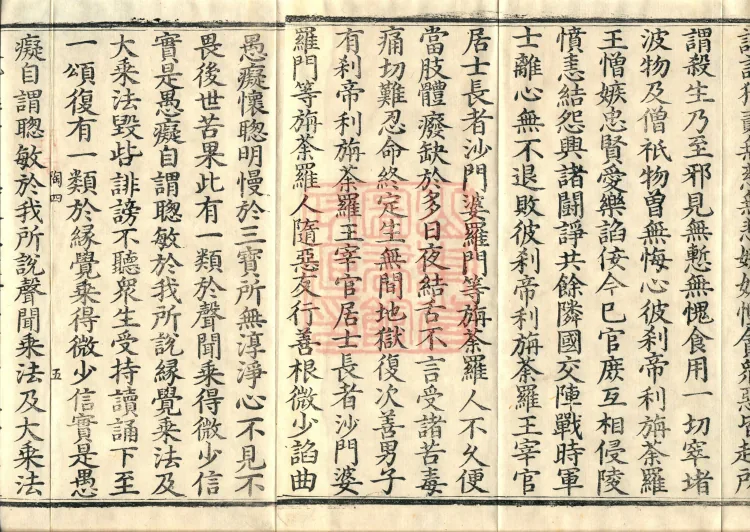 謂殺生乃至邪見無慙無愧食用一切窣堵
波物及僧祇物曽無悔心彼刹帝利旃荼羅
王憎嫉忠賢愛樂諂佞令已官庶互相侵陵
憤恚結怨興諸鬪諍共餘隣國交陣戰時軍
士離心無不退敗彼刹帝利旃荼羅王宰官
居士長者沙門婆羅門等旃荼羅人不久便
當肢體癈缺於多日夜結舌不言受諸苦毒
痛切難忍命終定生無間地獄復次善男子
有刹帝利旃荼羅王宰官居士長者沙門婆
羅門等旃荼羅人隨惡友行善根微少諂曲
愚癡懷聦明慢於三寶所無淳淨心不見不
畏後世苦果此有一類於聲聞乘得微少信
實是愚癡自謂聦敏於我所説緣覺乘法及
大乘法毀呰誹謗不聽衆生受持讀誦下至
一頌復有一類於緣覺乘得微少信實是愚
陶四 五
癡自謂聦敏於我所説聲聞乘法及大乘法